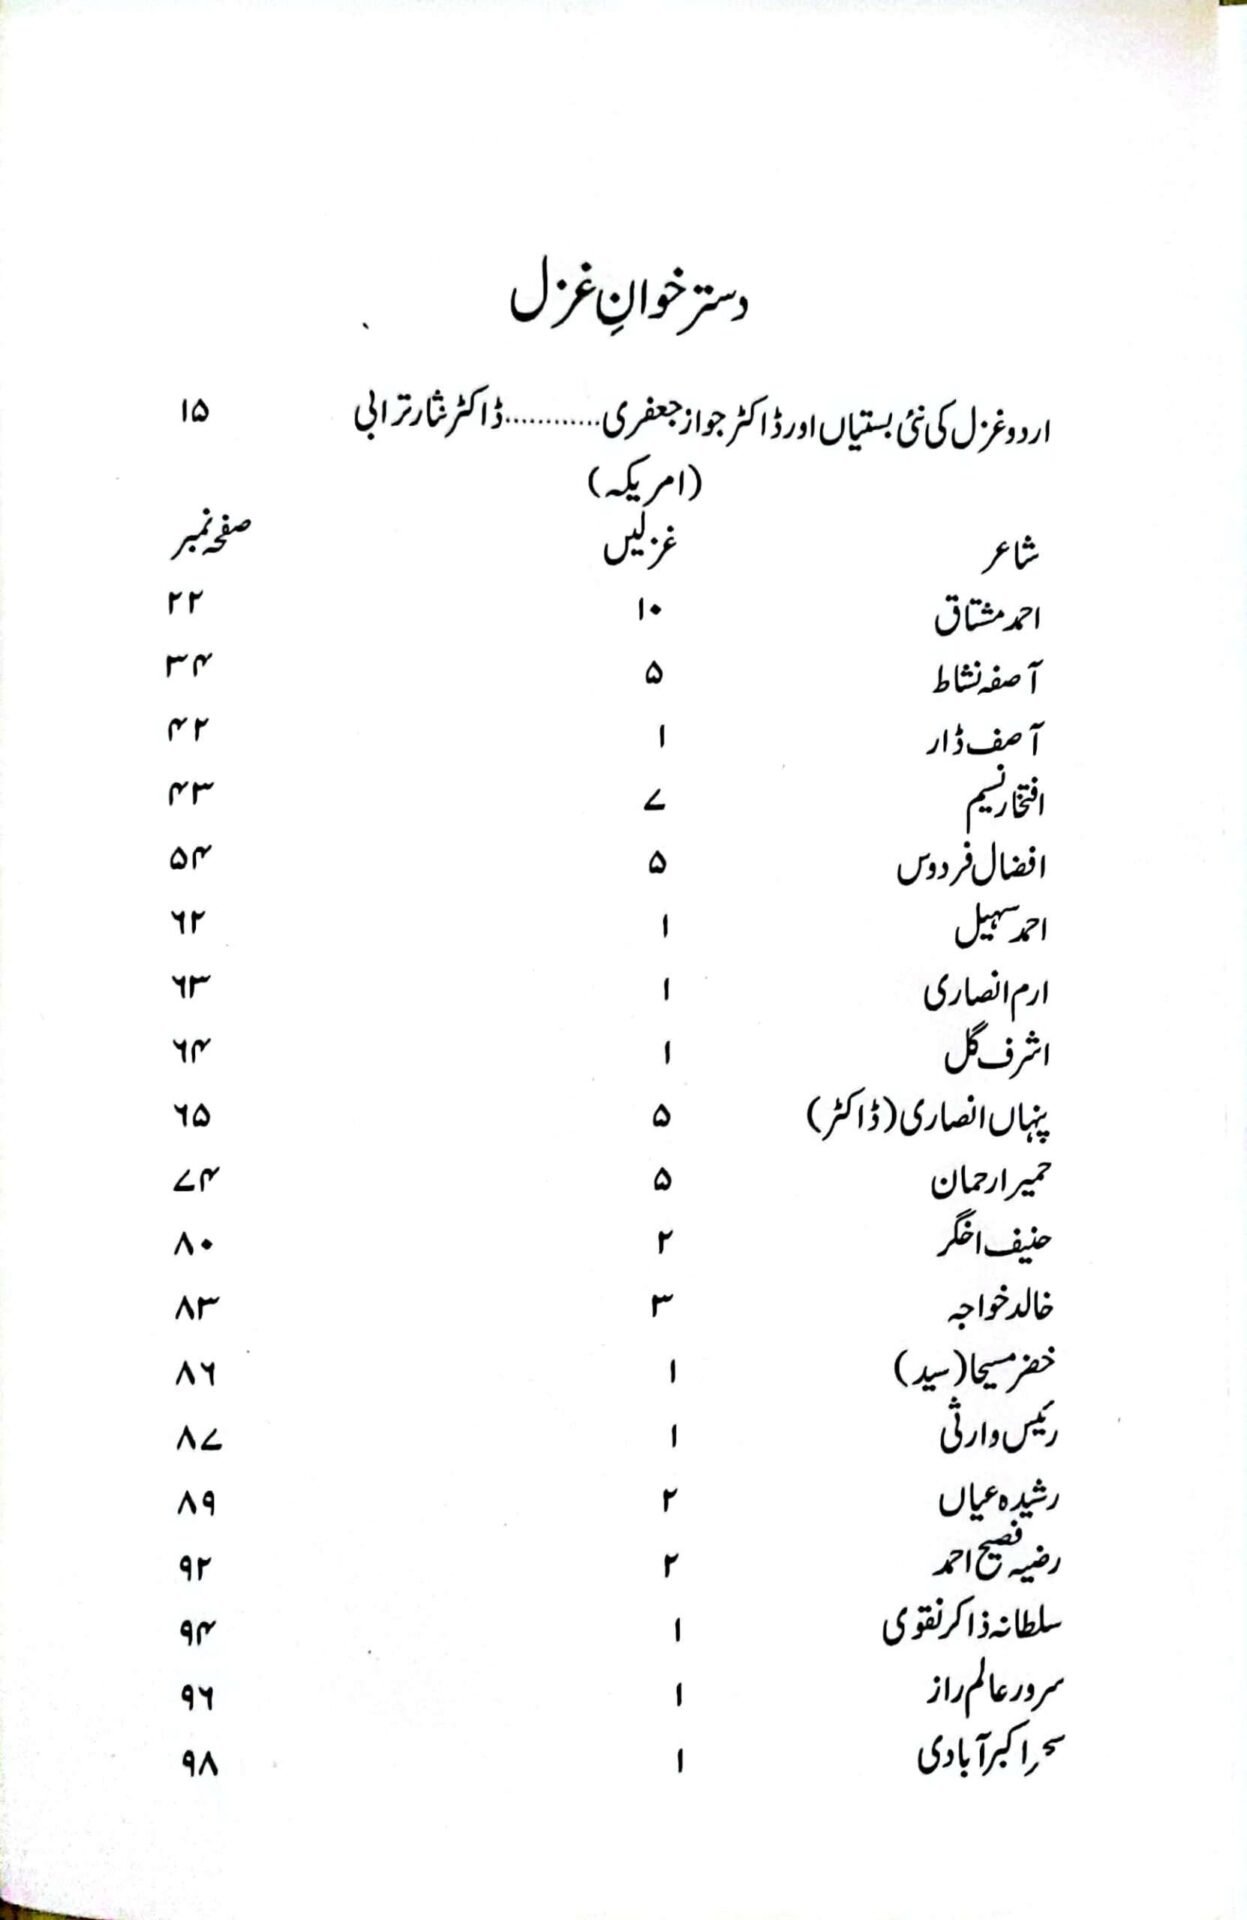 دسترخوانِ غزل
اردو غزل کی نئی بستیاں اور ڈاکٹر جواز جعفری............ڈاکٹر نثار ترابی ۱۵
(امریکہ)
شاعر غزلیں صفحہ نمبر
احمد مشتاق ۱۰ ۲۲
آصفہ نشاط ۵ ۳۴
آصف ڈار ۱ ۴۲
افتخار نسیم ۷ ۴۳
افضال فردوس ۵ ۵۴
احمد سہیل ۱ ۶۲
ارم انصاری ۱ ۶۳
اشرف گل ۱ ۶۴
پنہاں انصاری (ڈاکٹر) ۵ ۶۵
حمیرا رحمان ۵ ۷۴
حنیف اخگر ۲ ۸۰
خالد خواجہ ۳ ۸۳
خضر مسیحا (سید) ۱ ۸۶
رئیس وارثی ۱ ۸۷
رشیدہ عیاں ۲ ۸۹
رضیہ فصیح احمد ۲ ۹۲
سلطانہ ذاکر نقوی ۱ ۹۴
سرور عالم راز ۱ ۹۶
سحر اکبر آبادی ۱ ۹۸